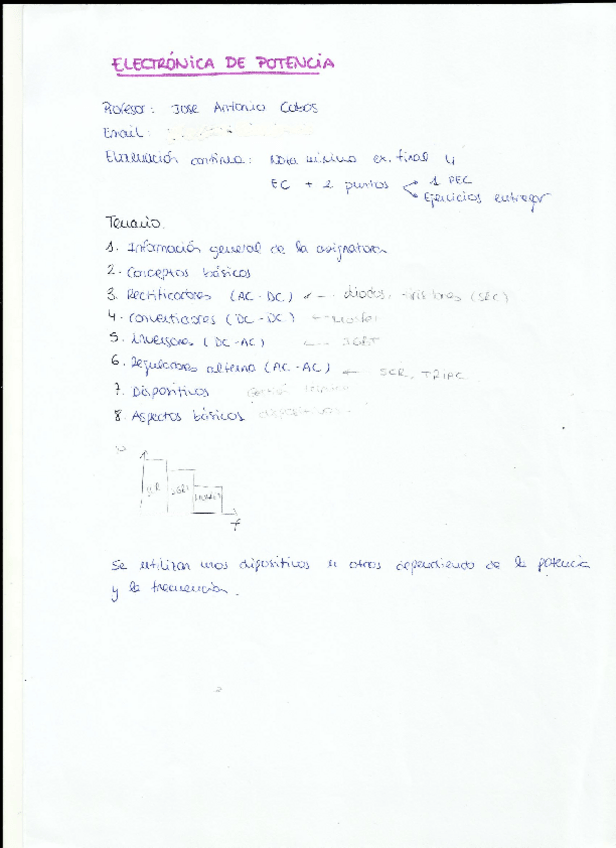 ELECTRÓNICA DE POTENCIA
Profesor: Jose Antonio Cobos
Email:
Evaluación continua: Nota mínima ex. final 4
EC + 2 puntos
1 PEC
Ejercicios entregar
Temario.
1. Información general de la asignatura
2. Conceptos básicos
3. Rectificadores (AC-DC) ← diodos, tiristores (SRC)
4. Convertidores (DC-DC) ←
5. Inversores (DC-AC) ← IGBT
6. Reguladores alterna (AC-AC) ← SCR, TRIAC
7. Dispositivos
8. Aspectos básicos dispositivos.
IGBT
f
Se utilizan unos dipositivos u otros dependiendo de la potencia
y la frecuencia.